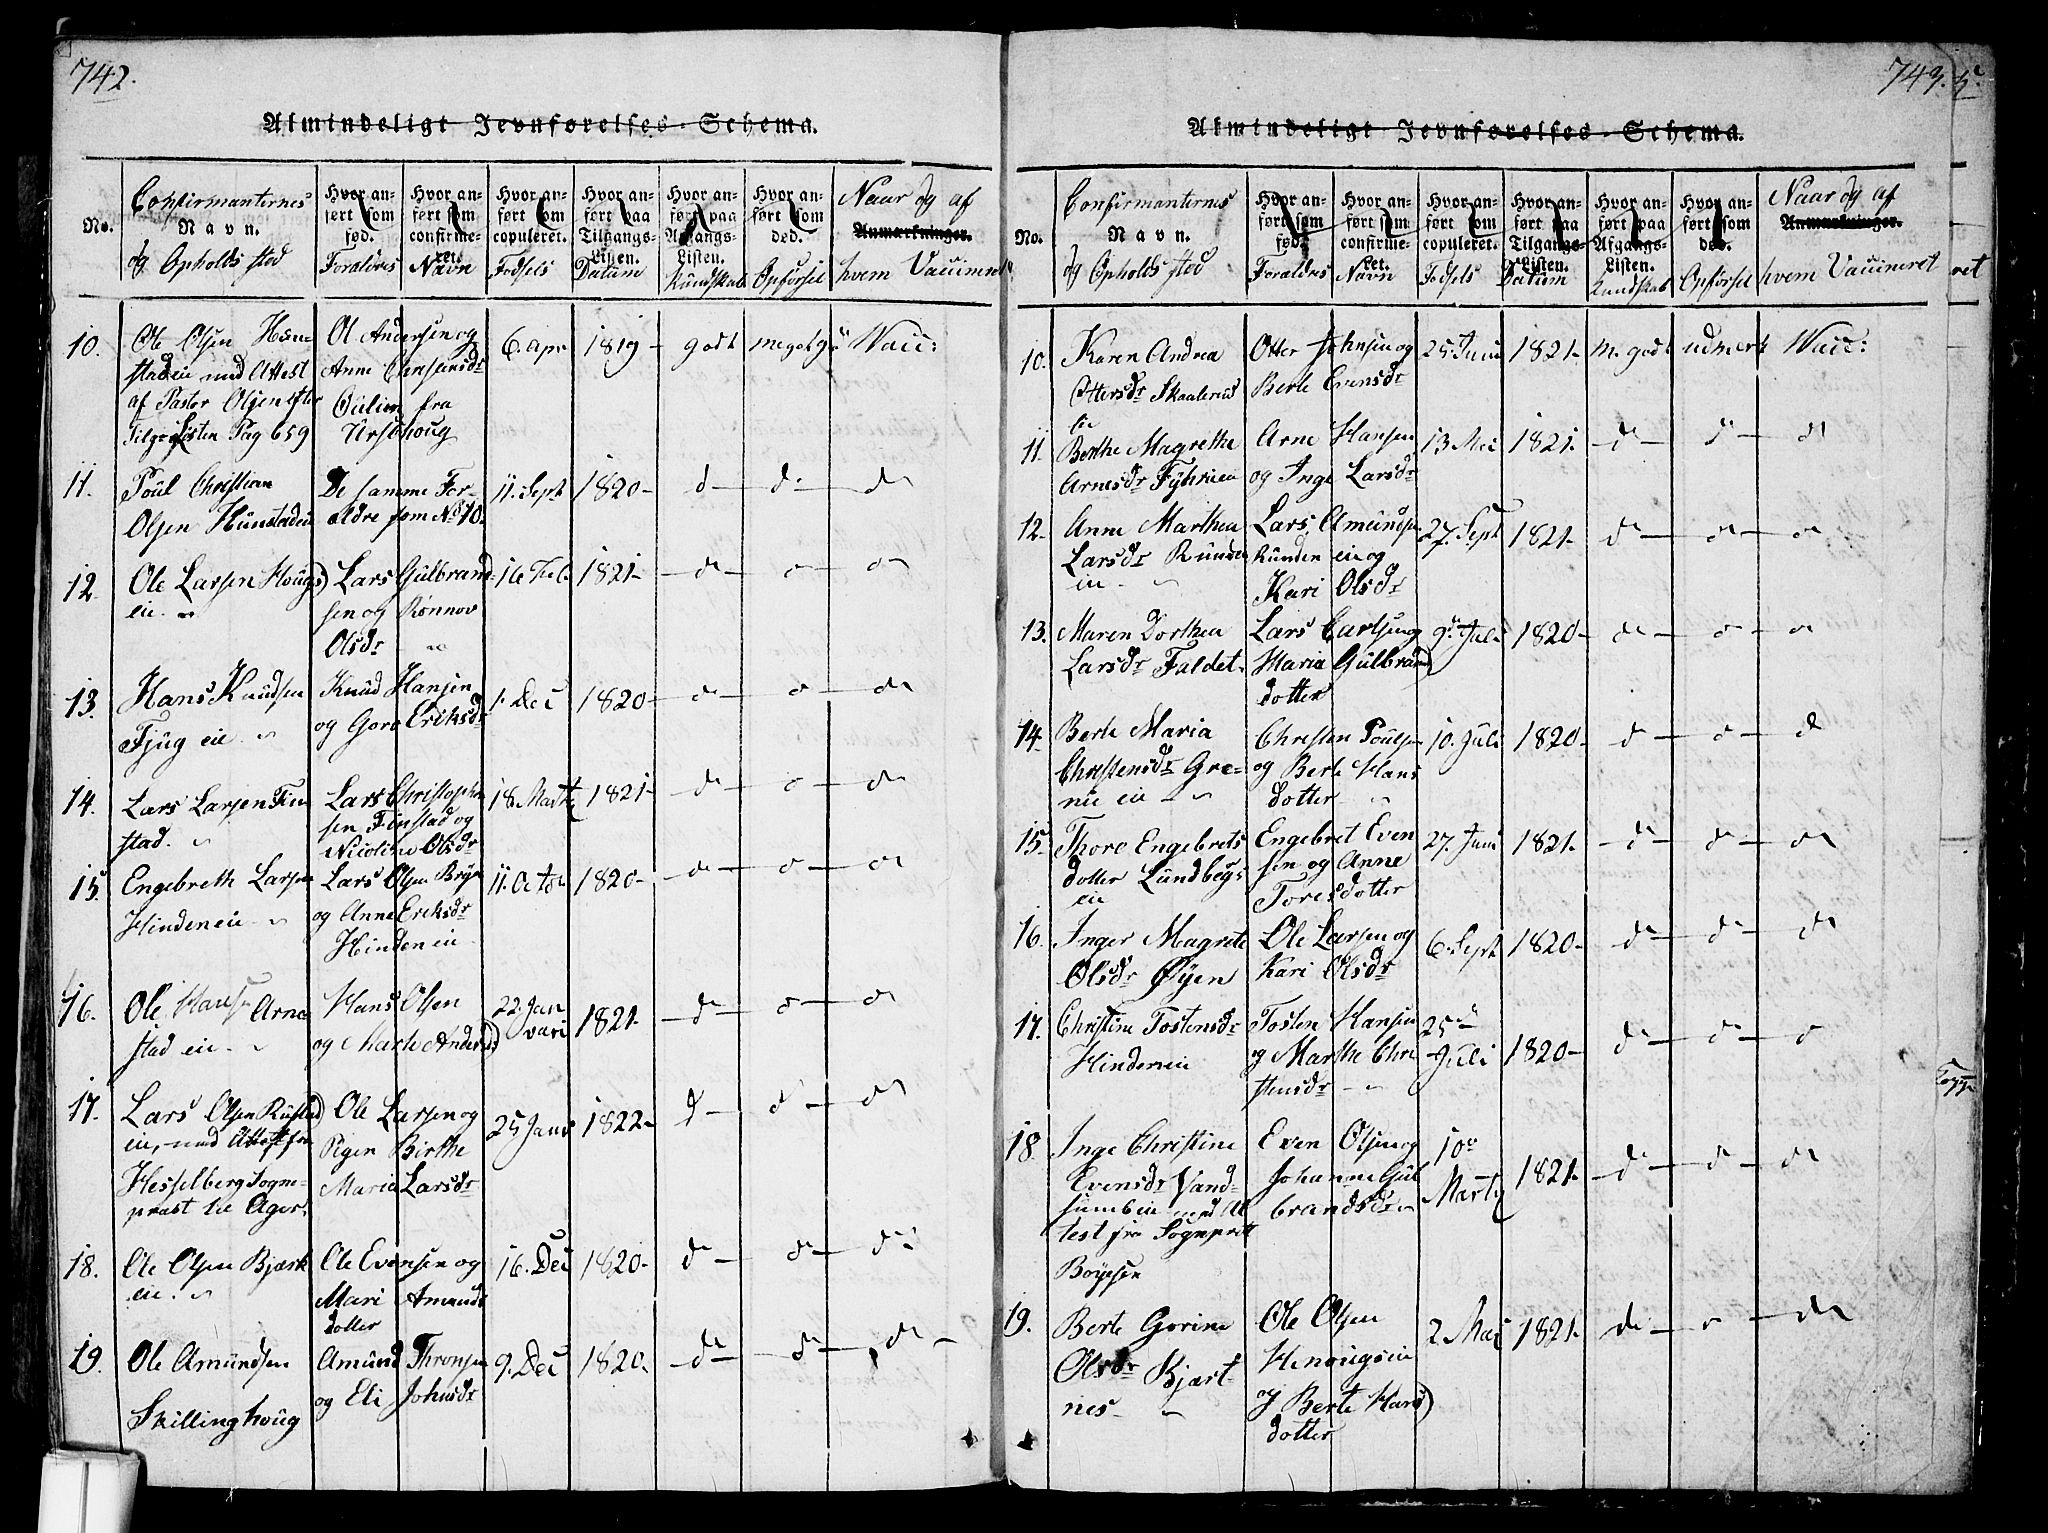 742.
Almindeligt Jevnførelses-Schema.
No.
Confirmanternes
Navn.
og Opholds sted
Hvor an-
ført som
fød.
Forældres
Hvor an-
ført som
confirme-
ret.
Navn
Hvor an-
ført som
copuleret.
Fødsels
Hvor an-
ført paa
Tilgangs-
Listen.
Datum
Hvor an-
ført paa
Afgangs-
Listen.
Kundskab
Hvor an-
ført som
død.
Opførsel
Naar og af
Anmærkninger.
hvem Vaccineret
10. Ole Olsen
staden med Attest
af Pastor Olsen efter
Tilgs Listen Pag 659
Ol Andersen og
Anne Christensdr
fra
6 apr 1819 - godt meget g Vacc:
11. Poul Christian
Olsen
De samme For-
ældre som No 10.
11. Sept 1820 - d d d
12. Ole Larsen Hougs
eie
Lars Gulbrand
sen og Rønnov
Olsdr
16 Feb. 1821 - d d
13. Hans Knudsen
Fjug eie
Knud Hansen
og Goro Eriksdr
1. Dec 1820 - d d
14. Lars Larsen Fin
stad.
Lars Christophe
sen Finstad og
Nicoline Olsdr
18. Marti 1821 - d d
15. Engebreth Larsen
Hinden eie
Lars Olsen
og Anne Eriksdr
Hinden eie
11. Octo 1820 - d d
16. Ole Hansen Arne
stad eie
Hans Olsen
og Marte Andersd
22. Jan
vari 1821. d d
17. Lars Olsen Rustad
eie, med Attest fra
Hesselberg Sogne-
præst til Ager.
Ole Larsen og
Pigen Birthe
Maria Larsdr
25 Janv 1822 - d d d
18. Ole Olsen Bjærk
eie.
Ole Evensen og
Mari Amunds
dotter
16. Dec 1820 - d d d
19. Ole Amundsen
Skillinghoug
Amund Thronsen
og Eli Johnsdr
9. Dec 1820. d d d
743.
Almindeligt Jevnførelses-Schema.
No.
Confirmanternes
Navn.
og Opholds sted
Hvor an-
ført som
fød.
Forældres
Hvor an-
ført som
confirme-
ret.
Navn
Hvor an-
ført som
copuleret.
Fødsels
Hvor an-
ført paa
Tilgangs-
Listen.
Datum
Hvor an-
ført paa
Afgangs-
Listen.
Kundskab
Hvor an-
ført som
død.
Opførsel
Naar og af
Anmærkninger.
hvem Vaccineret
ret
10. Karen Andrea
Ottersdr
Otter Johnsen og
Berte Evensdr
25. Juni 1821. m. godt udmerk Vacc:
11. Berthe Magrethe
Arnesdr
Arne Hansen
og Inge Larsdr
13 Mai 1821. d d d
12. Anne Marthea
Larsdr Runden
eie
Lars Amundse
Runden eie og
Kari Olsdr
27. Sept 1821. d d
13. Maren Dorthea
Larsdr Faldet.
Lars Carlsen og
Maria Gulbrand
dotter
9. Juli 1820 - d d
14. Berte Maria
Christensdr Gre-
nie eie
Christen Poulsen
og Berte Hans
dotter
10. Juli 1820 - d d
15. Thore Engebrets
dotter Lundbegs
eie
Engebret Even
sen og Anne
Toresdotter
27. Juni 1821. d d d
16. Inger Magrete
Olsdr Øyen
Ole Larsen og
Kari Olsdr
6. Sept 1820 - d d d
17. Christine Tostensdr
Hinden eie
Tosten Hansen
og Marthe Chri
stensdr
25de
Juli 1820 - d d
18. Inge Christine
Evensdr Vand-
med At
test fra Sognpræst
Boyesen
Even Olsen og
Johanne Gul
brandsdr
10
Marty 1821. d d d
19. Berte Gorine
Olsdr Bjært-
nes
Ole Olsen
og Berte Hans
dotter
2. Mai 1821. d d